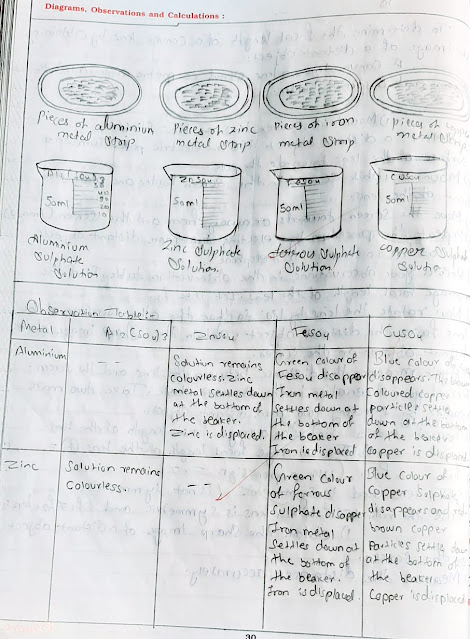 Diagrams, Observations and Calculations :
Pieces of aluminium
metal strip
Pieces of zinc
metal strip
Pieces of iron
metal strip
pieces of
metal strip
Al2(SO4)3
50
40
30
20
10
50ml
ZnSO4
50ml
FeSO4
50ml
CuSO4
50ml
Alumnium
Sulphate
Solution
Zinc Sulphate
Solution.
ferrous Sulphate
Solution.
copper Sulphate
Solution
Observation Table:-
Metal
Al2(SO4)3
ZnSO4
FeSO4
CuSO4
Aluminium
--
Solution remains
colourless. Zinc
metal settles down
at the bottom of
the beaker.
Zinc is displaced.
Green colour of
FeSO4 disappear
Iron metal
settles down at
the bottom of
the beaker
Iron is displaced
Blue colour of
disappears. The
Coloured copper
particles settle
down at the bottom
of the beaker
copper is displaced
Zinc
Solution remains
Colourless.
--
Green colour
of ferrous
sulphate disapper
Iron metal is
settles down at
the bottom of
the beaker.
Iron is displaced.
Blue colour of
Copper Sulphate
disappears and
brown copper
Particles settle down
at the bottom of
the beaker.
Copper is displaced
30